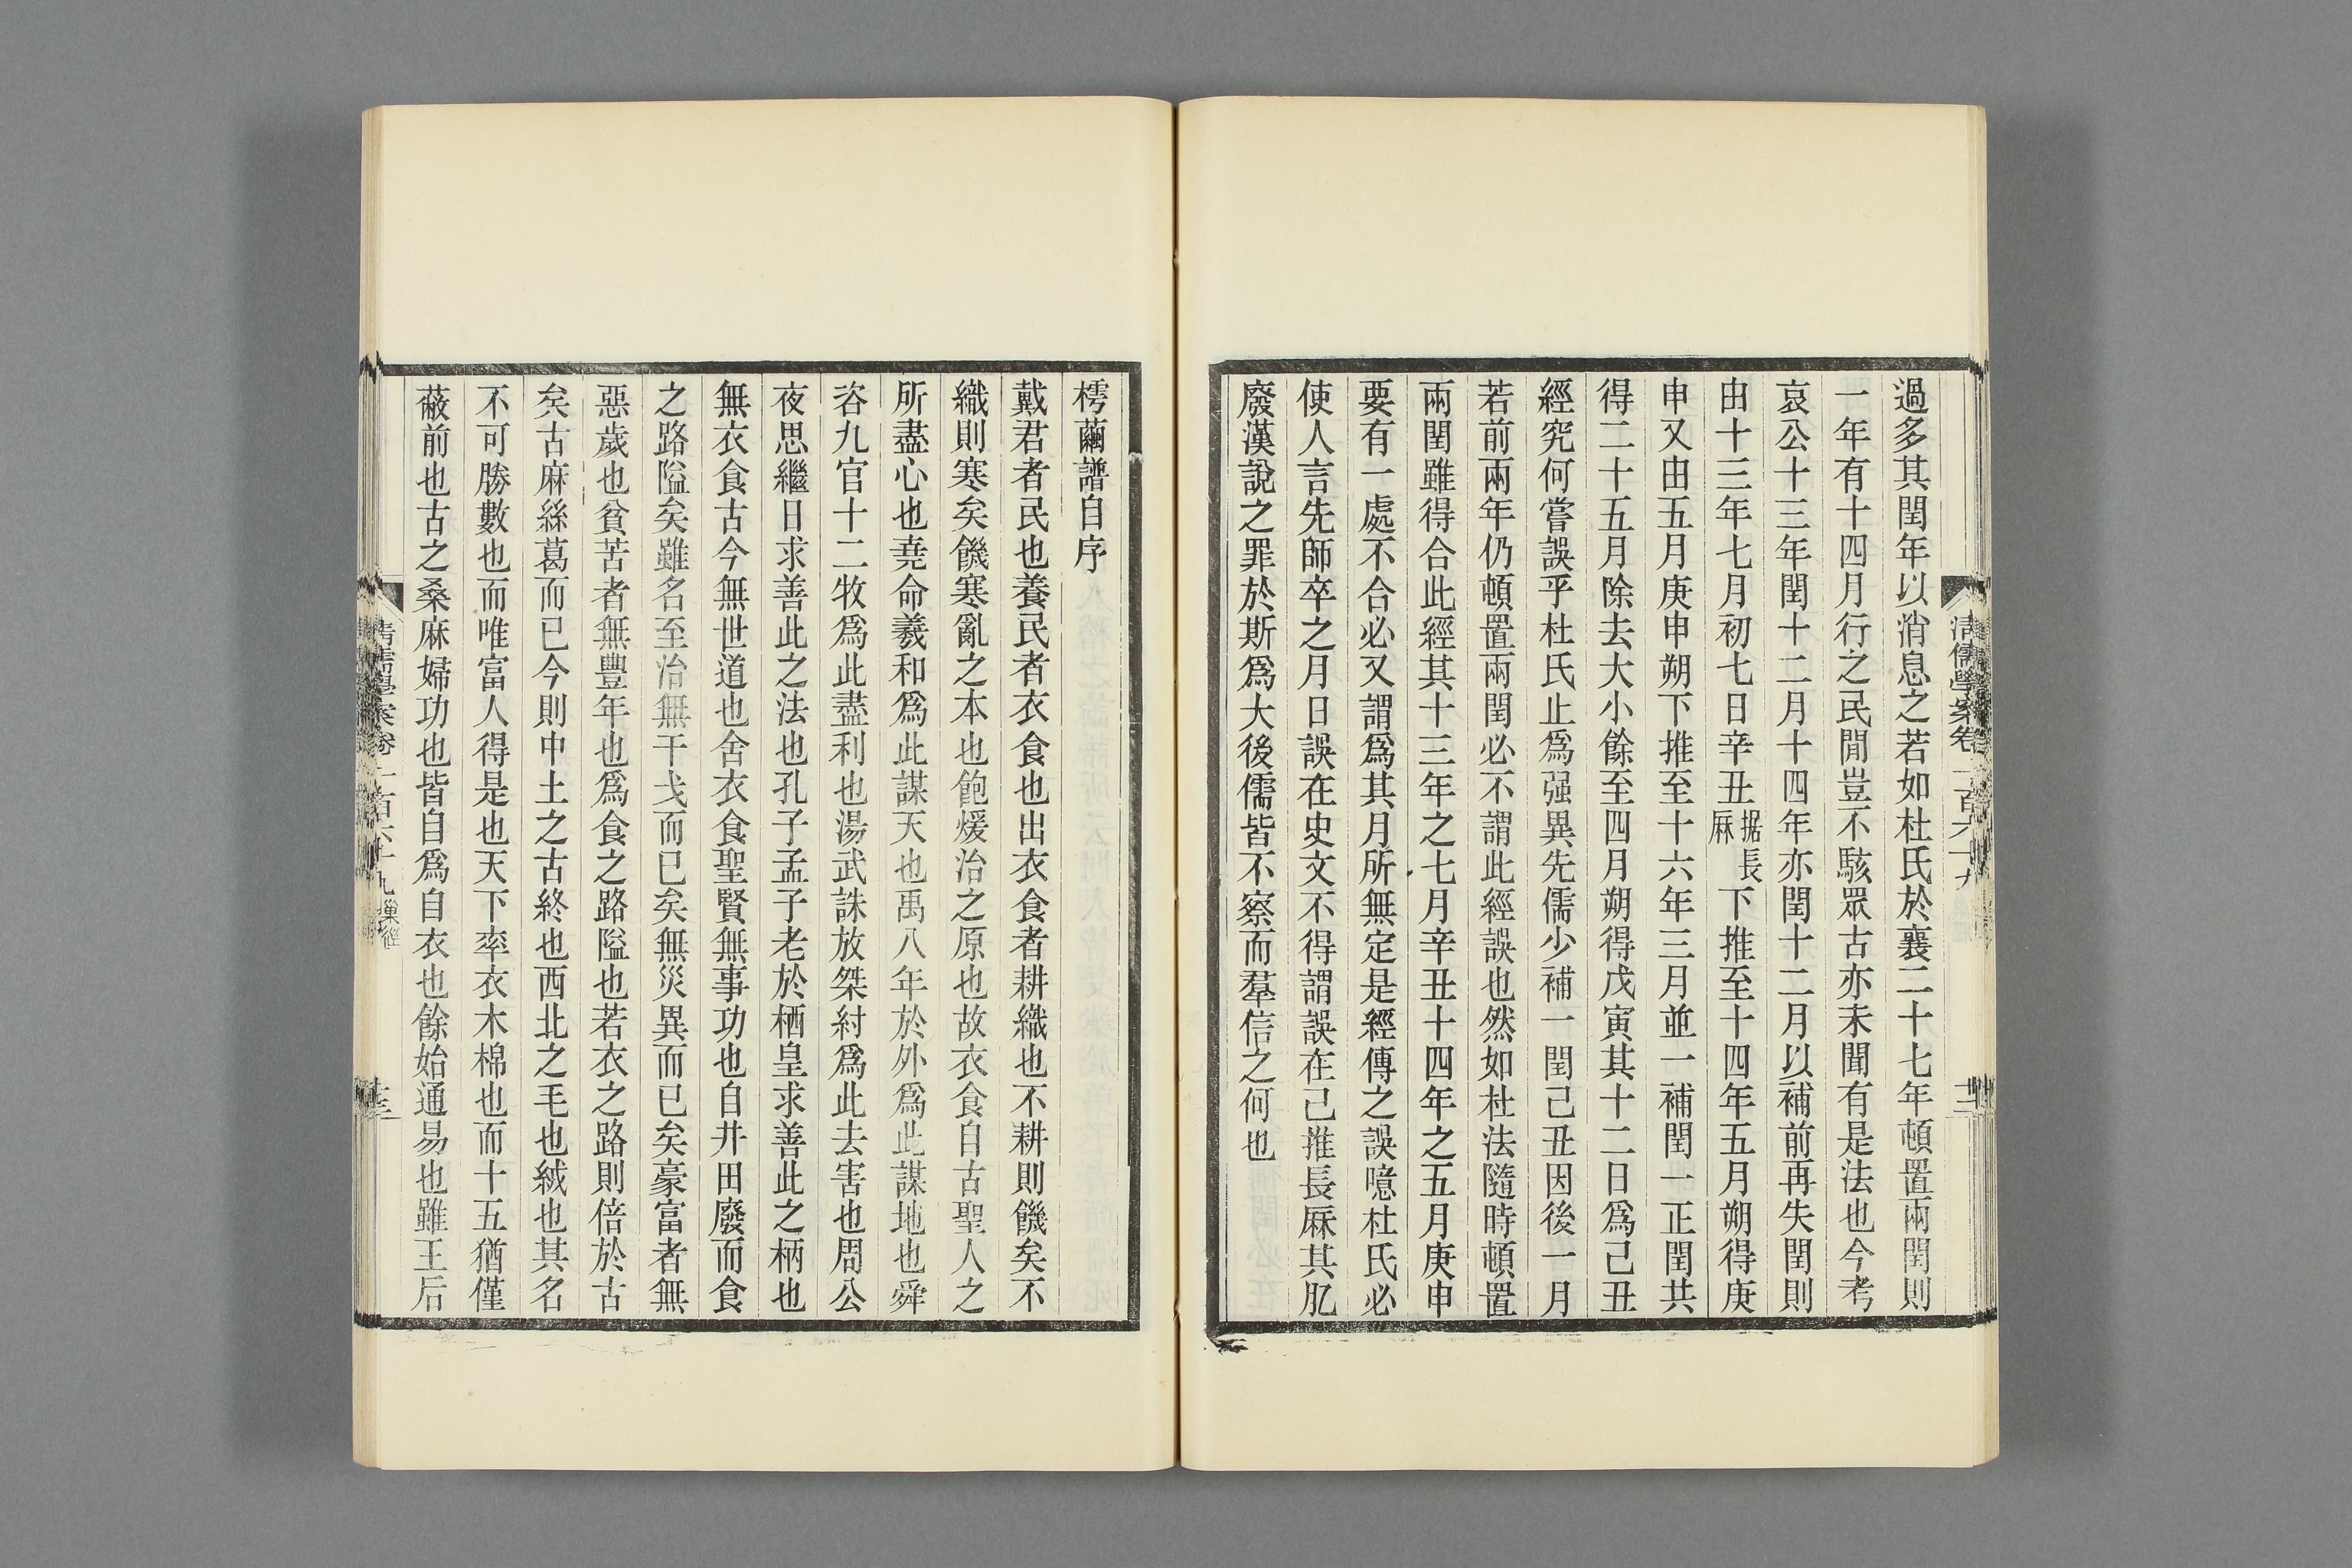 過多其閏年以消息之若如杜氏於襄二十七年頓置兩閏則
一年有十四月行之民閒豈不駭眾古亦未聞有是法也今考
哀公十三年閏十二月十四年亦閏十二月以補前再失閏則
由十三年七月初七日辛丑据長厤下推至十四年五月朔得庚
申又由五月庚申朔下推至十六年三月並一補閏一正閏共
得二十五月除去大小餘至四月朔得戊寅其十二日爲己丑
經究何嘗誤乎杜氏止爲强異先儒少補一閏己丑因後一月
若前兩年仍頓置兩閏必不謂此經誤也然如杜法隨時頓置
兩閏雖得合此經其十三年之七月辛丑十四年之五月庚申
要有一處不合必又謂爲其月所無定是經傳之誤噫杜氏必
使人言先師卒之月日誤在史文不得謂誤在己推長厤其肊
廢漢說之罪於斯爲大後儒皆不察而羣信之何也
清儒學案卷二百六十九
樗繭譜自序
戴君者民也養民者衣食也出衣食者耕織也不耕則饑矣不
織則寒矣饑寒亂之本也飽煖治之原也故衣食自古聖人之
所盡心也堯命羲和爲此謀天也禹八年於外爲此謀地也舜
咨九官十二牧爲此盡利也湯武誅放桀紂爲此去害也周公
夜思繼日求善此之法也孔子孟子老於栖皇求善此之柄也
無衣食古今無世道也舍衣食聖賢無事功也自井田廢而食
之路隘矣雖名至治無干戈而已矣無災異而已矣豪富者無
惡歲也貧苦者無豐年也爲食之路隘也若衣之路則倍於古
矣古麻絲葛而已今則中土之古終也西北之毛也絨也其名
不可勝數也而唯富人得是也天下率衣木棉也而十五猶僅
蔽前也古之桑麻婦功也皆自爲自衣也餘始通易也雖王后
清儒學案卷一百六十九 巢經